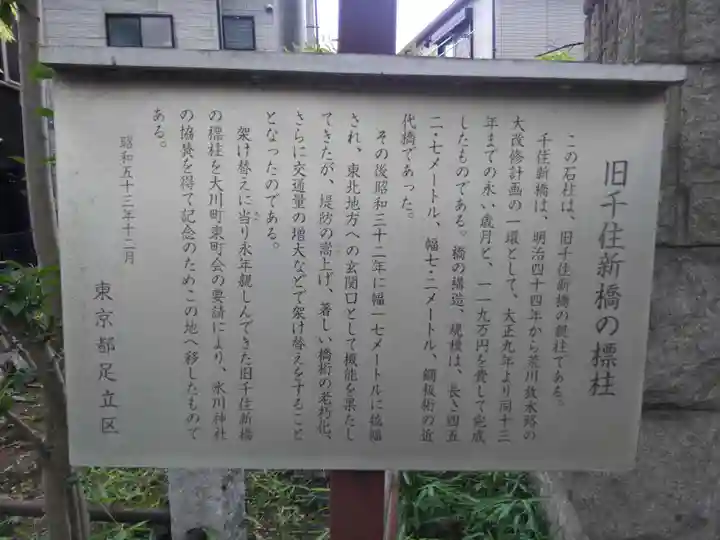 旧千住新橋の標柱
この石柱は、旧千住新橋の親柱である。
千住新橋は、明治四十四年から荒川放水路の
大改修計画の一環として、大正九年より同十三
年までの永い歳月と、一一九万円を費して完成
したものである。橋の構造、規模は、長さ四五
二・七メートル、幅七・二メートル、鋼鈑桁の近
代橋であった。
その後昭和三十二年に幅一七メートルに拡幅
され、東北地方への玄関口として機能を果たし
てきたが、堤防の嵩上げ、著しい橋桁の老朽化、
さらに交通量の増大などで架け替えをすること
となったのである。
架け替えに当り永年親しんできた旧千住新橋
の標柱を大川町東町会の要請により、氷川神社
の協賛を得て記念のためこの地へ移したもので
ある。
昭和五十三年十二月
東京都足立区